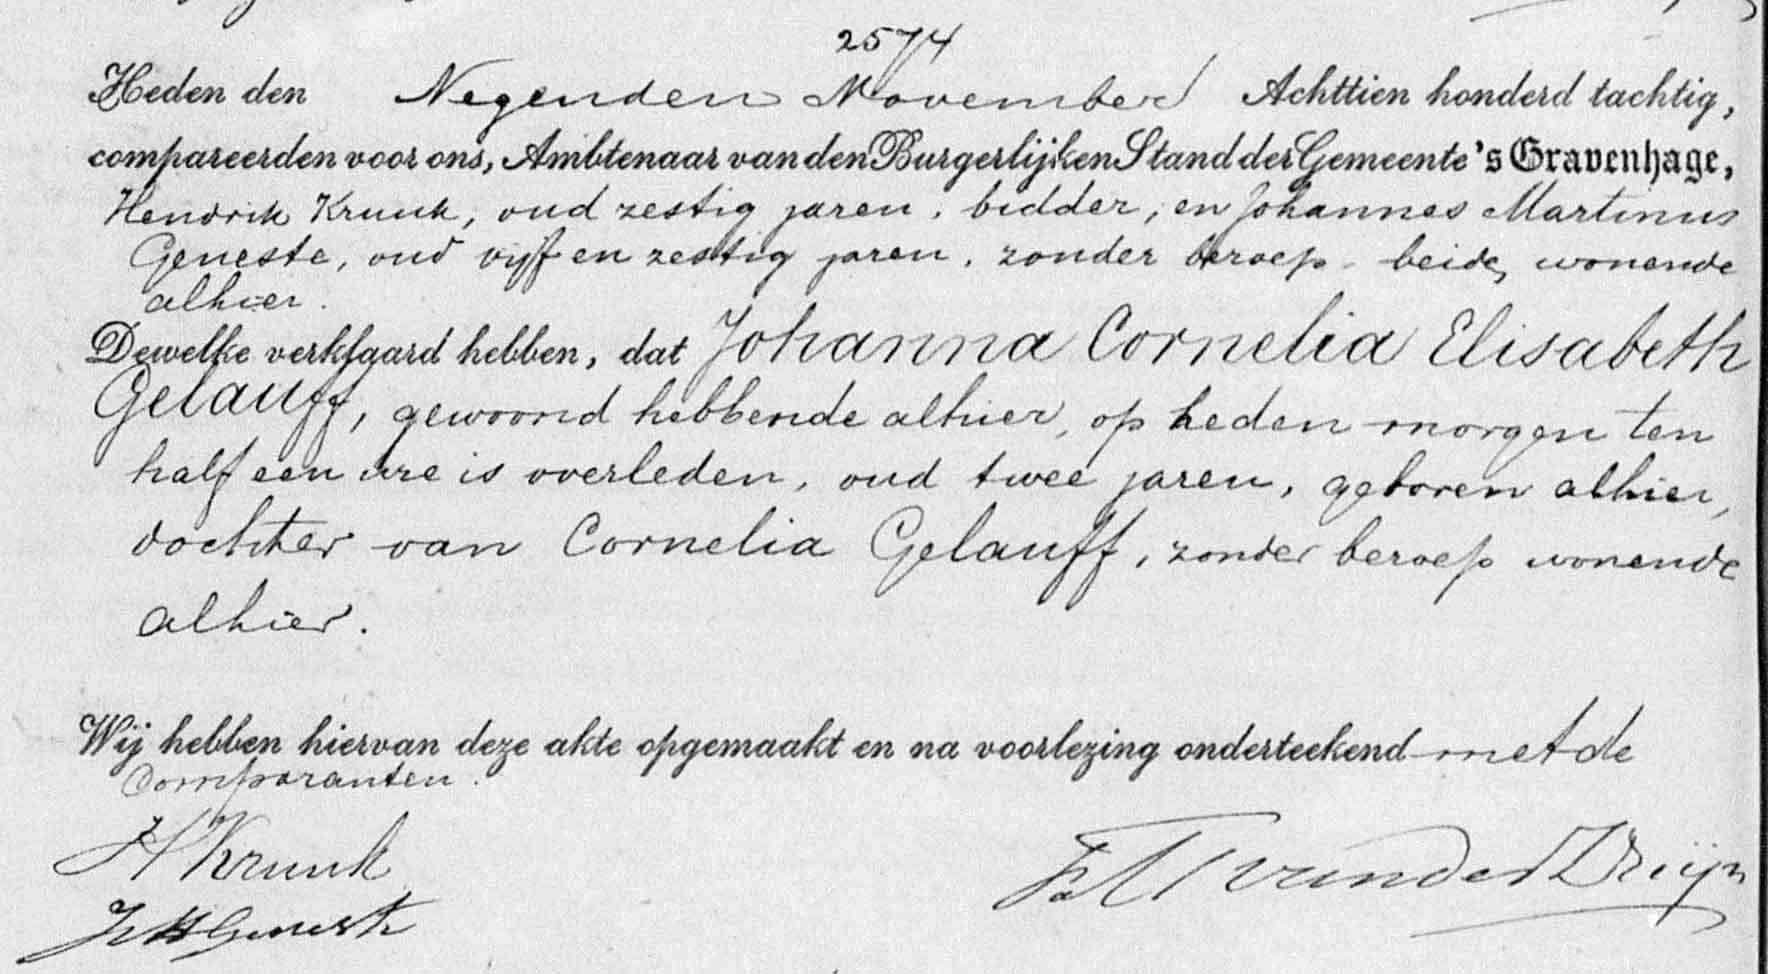 2574
Heden den Negenden November Achttien honderd tachtig,
compareerden voor ons, Ambtenaar van den Burgerlijken Stand der Gemeente 's Gravenhage,
Hendrik Kruuk, oud zestig jaren, bidder, en Johannes Martinus
Geneste, oud vijf en zestig jaren, zonder beroep, beide wonende
alhier.
Dewelke verklaard hebben, dat Johanna Cornelia Elisabeth
Gelauff, gewoond hebbende alhier, op heden morgen ten
half een ure is overleden, oud twee jaren, geboren alhier,
dochter van Cornelia Gelauff, zonder beroep wonende
alhier.
Wij hebben hiervan deze akte opgemaakt en na voorlezing onderteekend met de
Comparanten.
H Kruuk
J M Geneste
van der